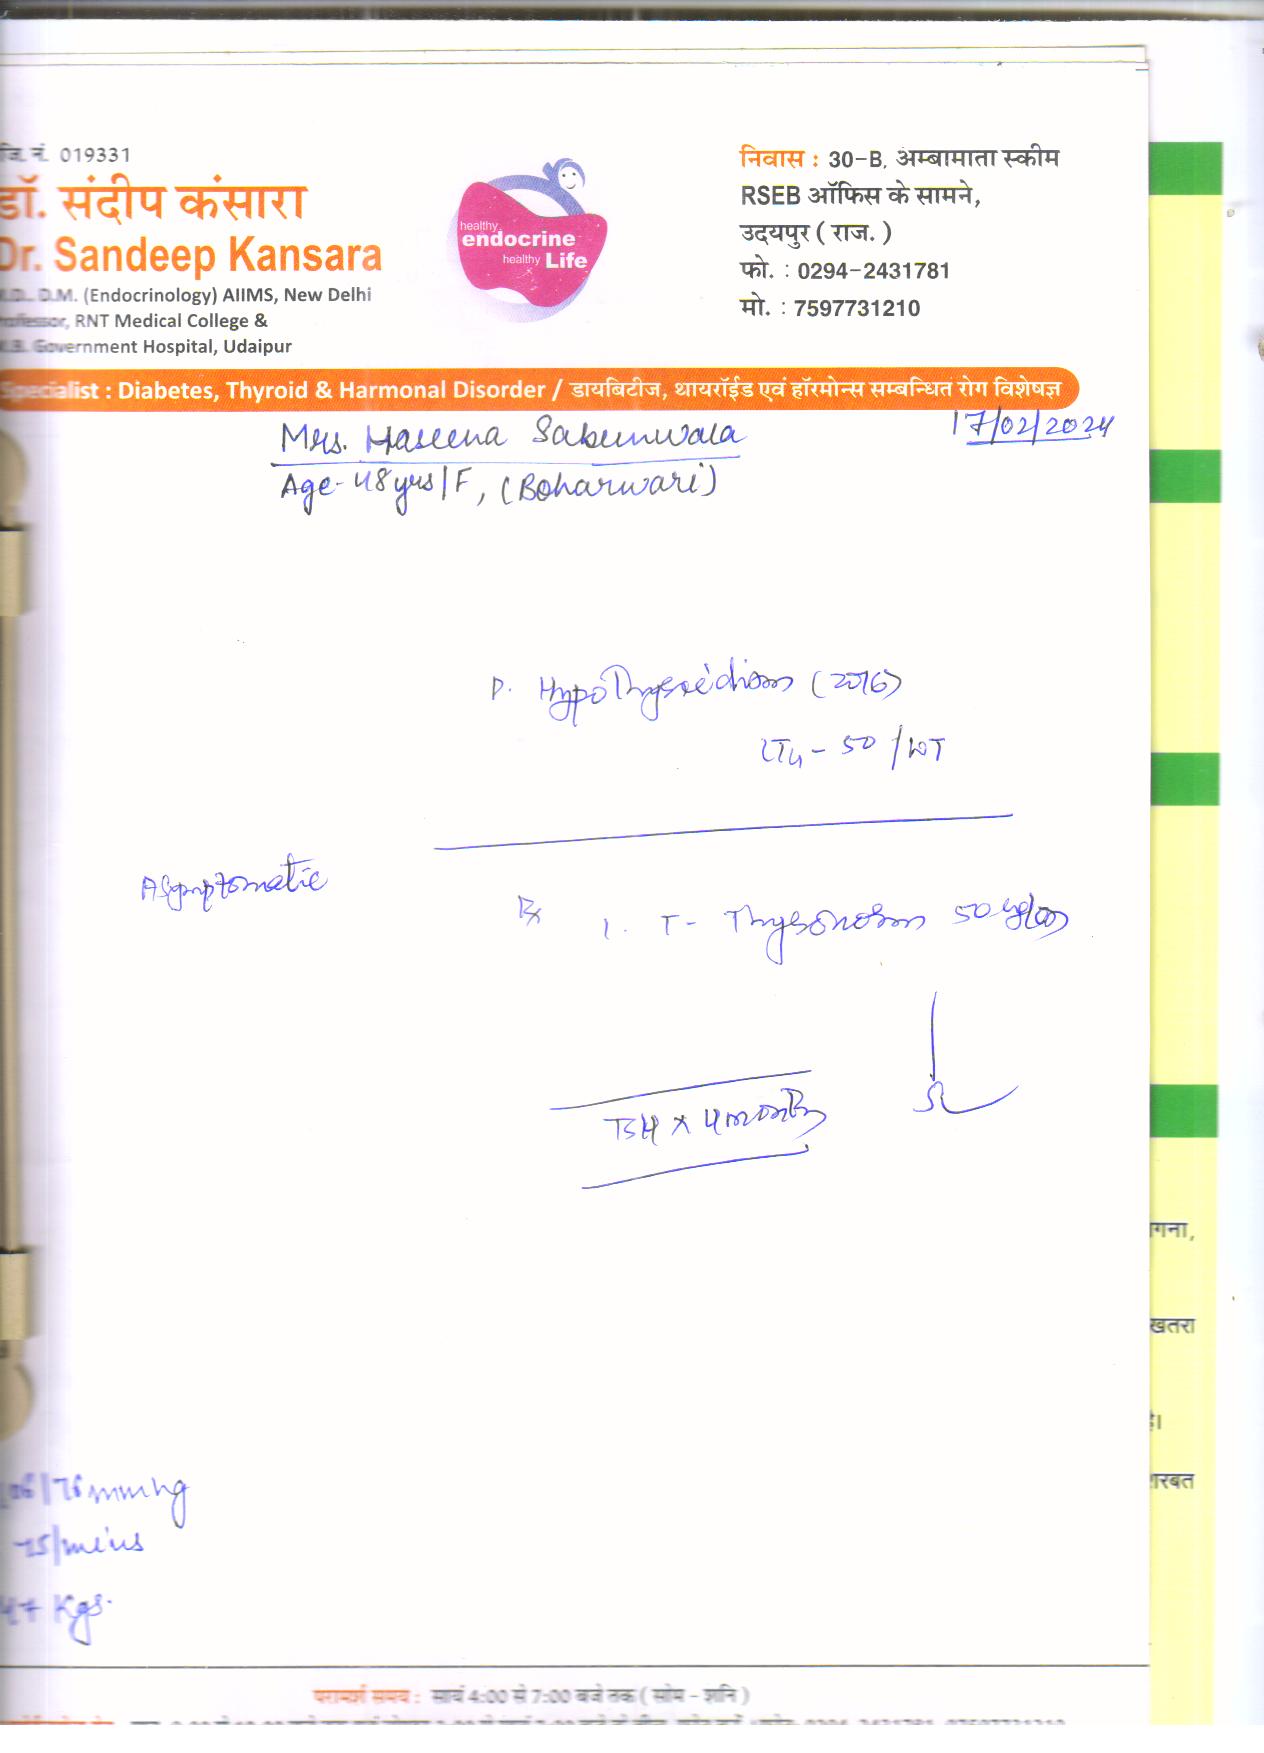 जि. नं. 019331
डॉ. संदीप कंसारा
Dr. Sandeep Kansara
M.D., D.M. (Endocrinology) AIIMS, New Delhi
Professor, RNT Medical College &
M.B. Government Hospital, Udaipur
healthy
endocrine
healthy Life
निवास : 30-B, अम्बामाता स्कीम
RSEB ऑफिस के सामने,
उदयपुर ( राज. )
फो. : 0294-2431781
मो. : 7597731210
Specialist : Diabetes, Thyroid & Harmonal Disorder / डायबिटीज, थायरॉईड एवं हॉरमोन्स सम्बन्धित रोग विशेषज्ञ
17/02/2024
Mrs. Haseena Saburwala
Age- 48 yrs/F, (Boharwari)
Hypothyroidism (2016)
LT4 - 50 / WT
Asymptomatic
Rx 1. T- Thyronorm 50
TSH x 4 months
106/76 mmhg
75/mins
47 Kgs.
परामर्श समय : सायं 4:00 से 7:00 बजे तक ( सोम - शनि )
गना,
खतरा
है।
शरबत